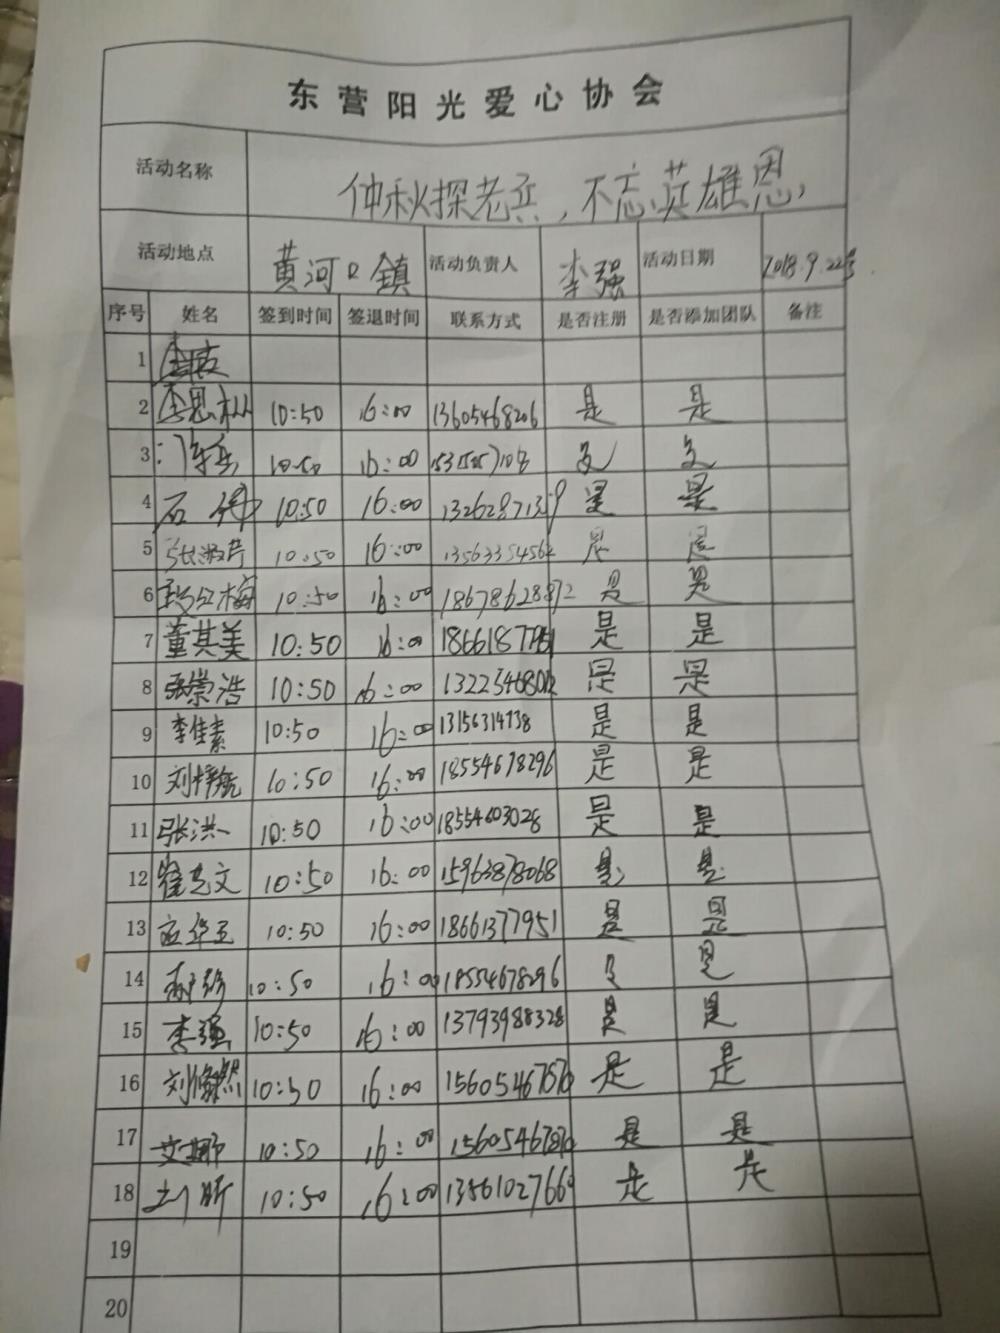 东营阳光爱心协会
活动名称 仲秋探老兵，不忘英雄恩，
活动地点 黄河口鎮 活动负责人 李强 活动日期 2018.9.22号
序号 姓名 签到时间 签退时间 联系方式 是否注册 是否添加团队 备注
1
2 10:50 16:00 13605468206 是 是
3 10:50 16:00
4 石伟 10:50 16:00 是 是
5 张淑芹 10:50 16:00 13563354562 是 是
6 10:50 16:00 18678628872 是 是
7 董其美 10:50 16:00 是 是
8 张崇浩 10:50 16:00 是 是
9 李佳素 10:50 16:00 13156314738 是 是
10 10:50 16:00 18554678296 是 是
11 张洪一 10:50 16:00 18554603028 是 是
12 16:00 10:50 15963878068 是 是
13 10:50 16:00 18661377951 是 是
14 10:50 16:00 18554678296 是
15 李强 10:50 16:00 13793988328 是 是
16 10:50 16:00 是 是
17 10:50 16:00 是 是
18 10:50 16:00 13561027660 是 是
19
20